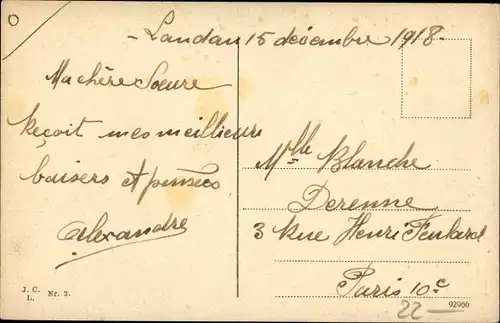 - Landau 15 décembre 1918 -
Ma chère Soeure
Reçoit mes meilleurs
baisers et pensées
Alexandre
Mlle Blanche
Derenne
3 Rue Henri Feulard
Paris 10e
22 —
J. C.
L. Nr. 2.
92960